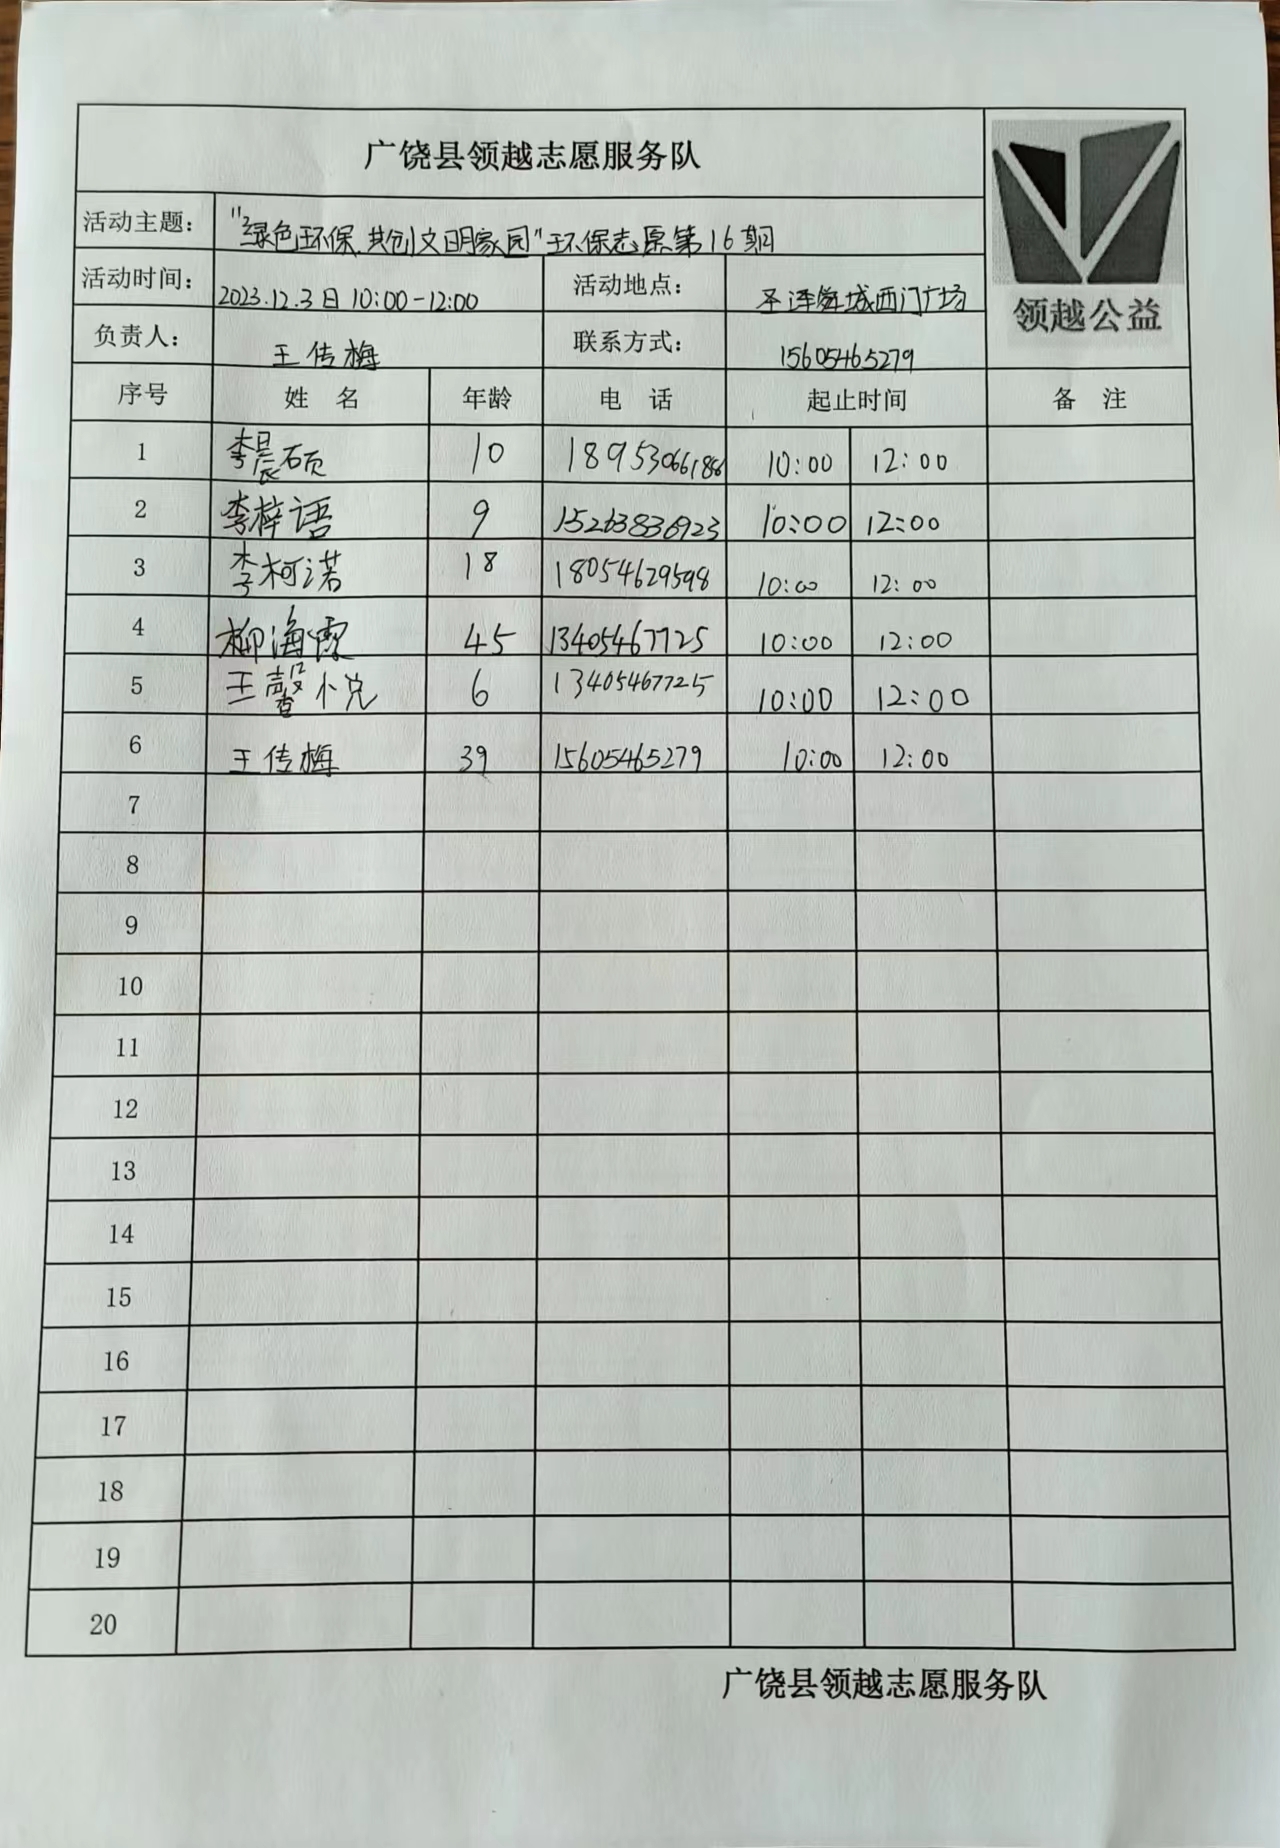 广饶县领越志愿服务队
活动主题： "绿色环保、共创文明家园"环保志愿第16期
领越公益
活动时间： 2023.12.3日 10:00-12:00 活动地点： 圣泽舜城西门广场
负责人： 王传梅 联系方式： 15605465279
序号 姓 名 年龄 电 话 起止时间 备 注
1 李晨硕 10 18953066186 10:00 12:00
2 李梓语 9 15263836923 10:00 12:00
3 李柯诺 18 18054629598 10:00 12:00
4 柳海霞 45 13405467725 10:00 12:00
5 王馨小兑 6 13405467725 10:00 12:00
6 王传梅 39 15605465279 10:00 12:00
7
8
9
10
11
12
13
14
15
16
17
18
19
20
广饶县领越志愿服务队